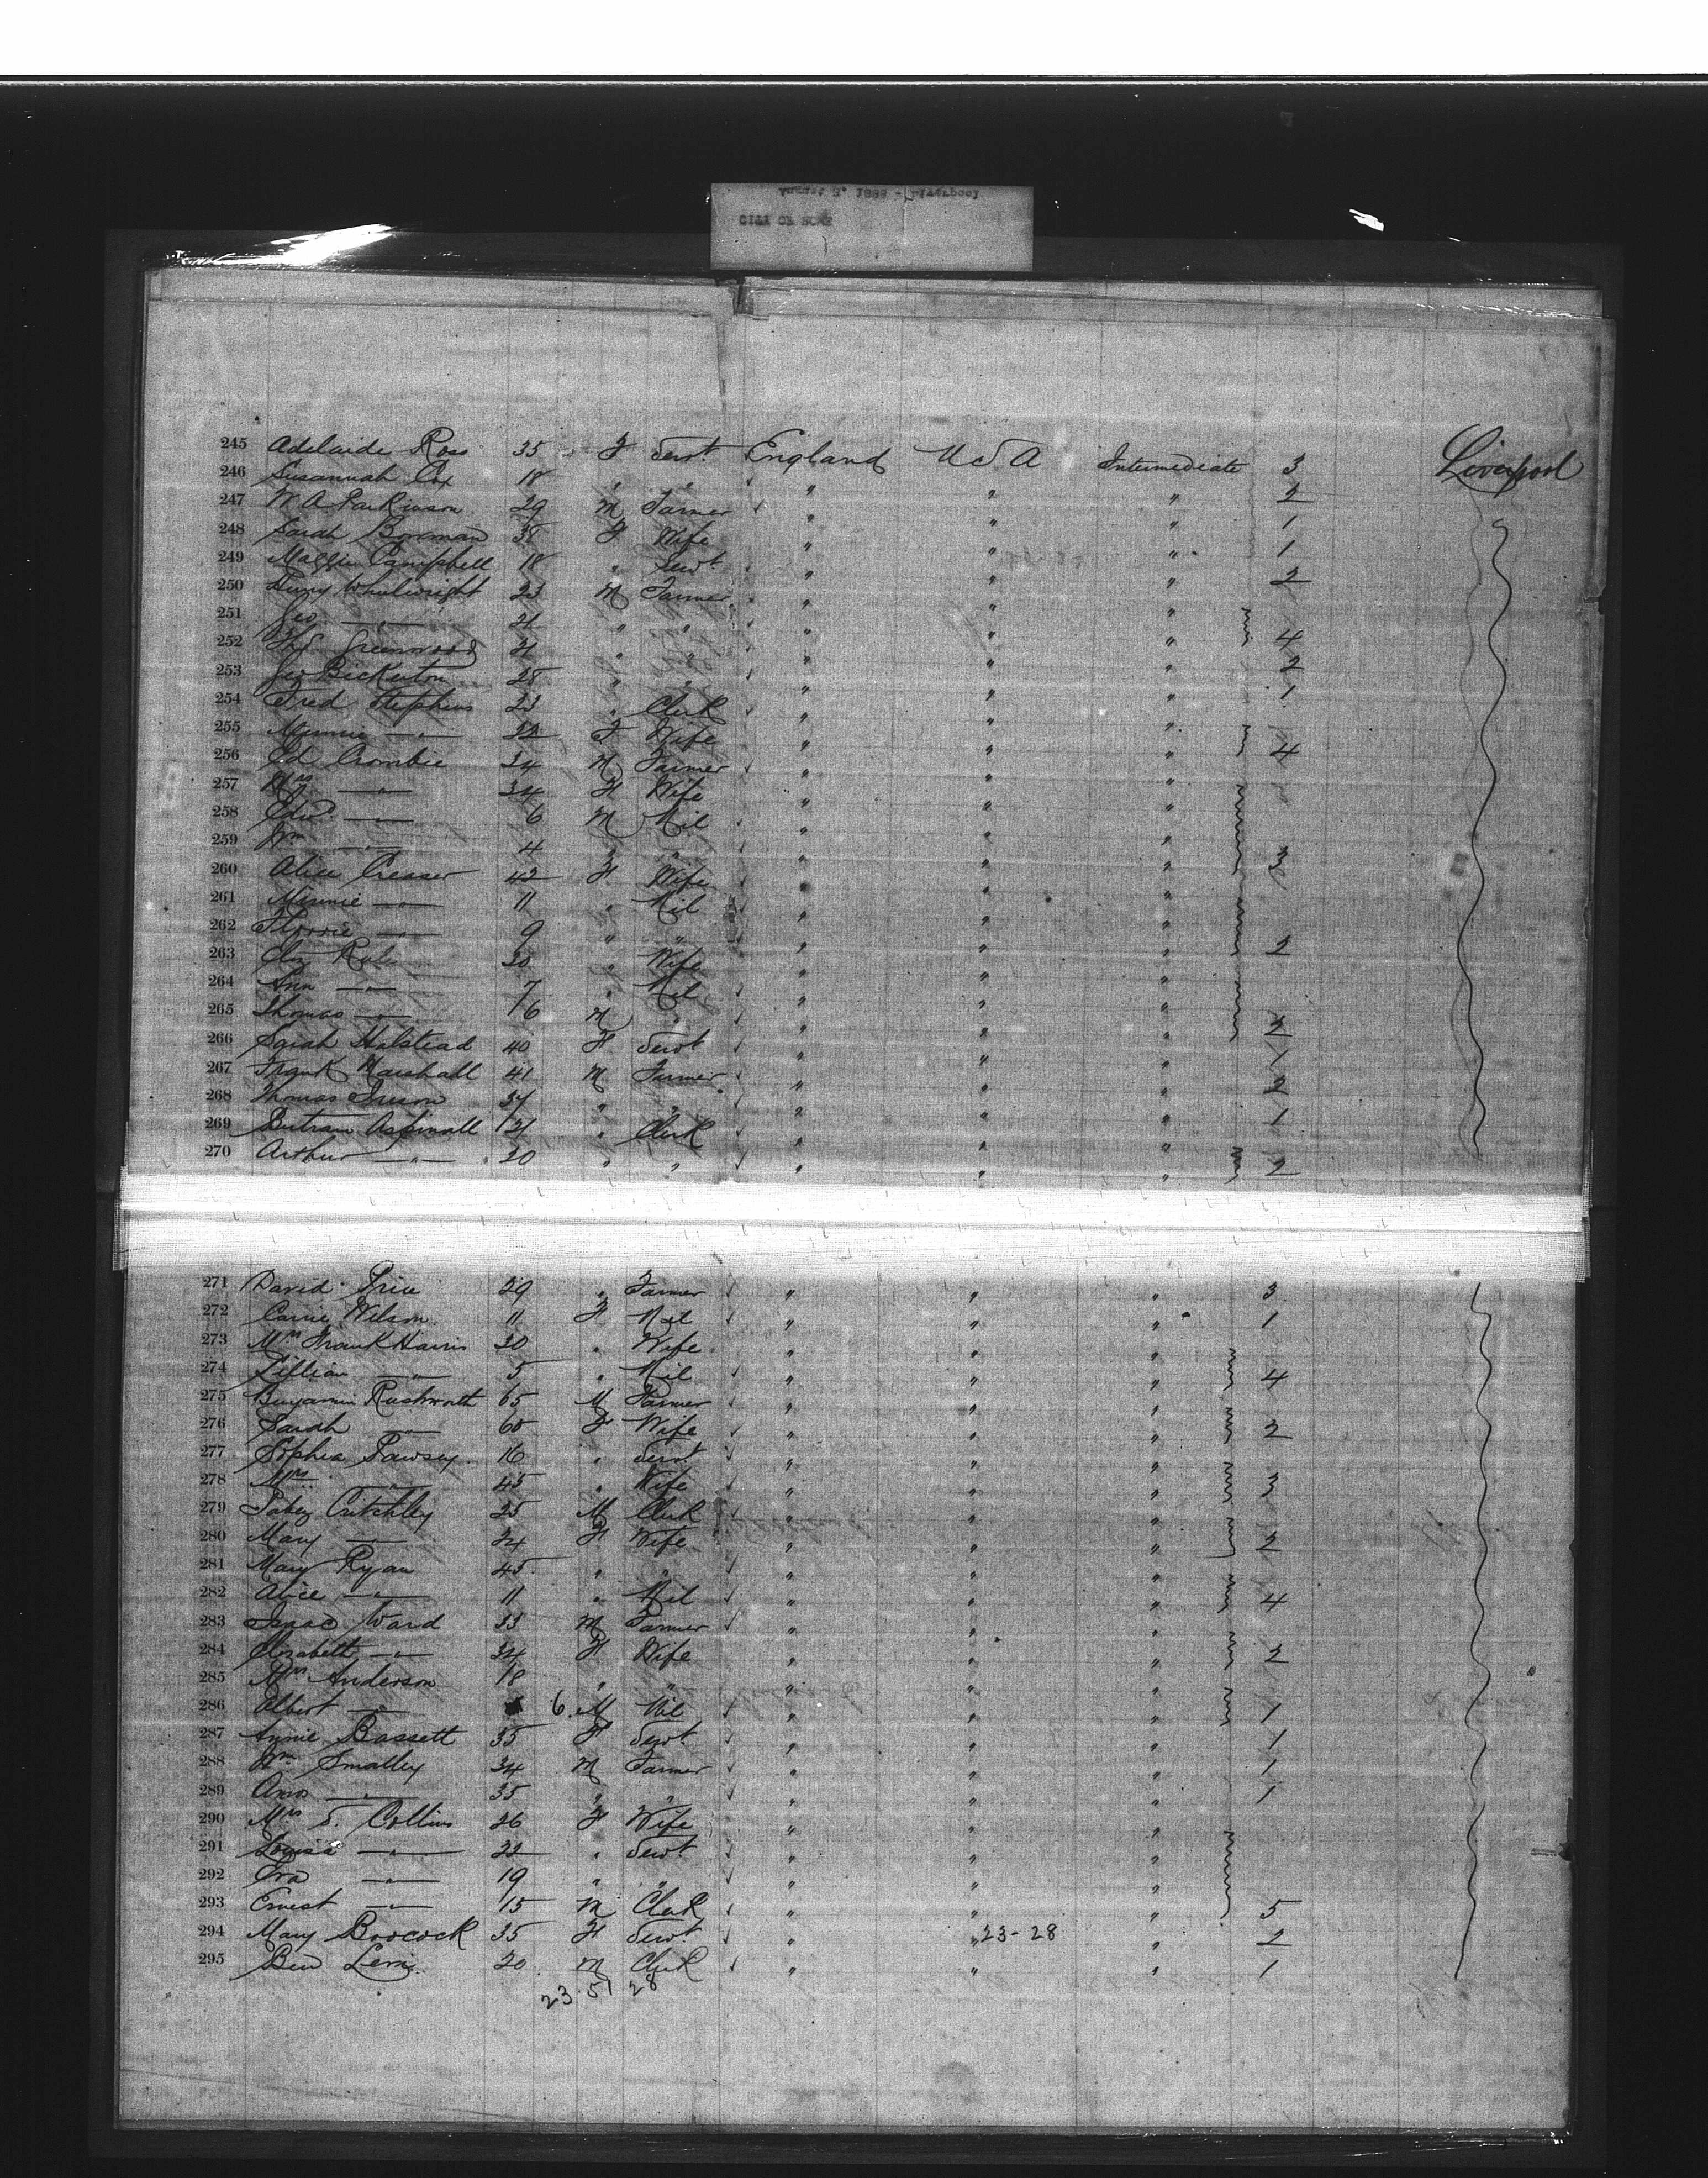 CITY OF ROME
245 Adelaide Ross 35 F Servt England U S A Intermediate 3 Liverpool
246 Susannah Cox 18 " " " " " 2
247 W A Parkinson 29 M Farmer " " " 1
248 Sarah Bowman 38 F Wife " " " 1
249 Maggie Campbell 18 " Servt " " " 2
250 Henry Wheelwright 23 M Farmer " " "
251 Geo —"— 21 " " " " " 4
252 Greenwood 21 " " " " " 2
253 Geo Bickerton 25 " " " " " 1
254 Fred Stephens 23 " Clerk " " "
255 Minnie —"— 22 F Wife " " " 4
256 Ed Crombie 34 M Farmer " " "
257 Mrs —"— 34 F Wife " " "
258 Edwd —"— 6 M Nil " " "
259 Wm —"— 4 " " " " " 3
260 Alice Creaser 42 F Wife " " "
261 Minnie —"— 11 " Nil " " "
262 Florrie —"— 9 " " " " " 2
263 Eliz 30 " Wife " " "
264 Ann —"— 7 " Nil " " "
265 Thomas —"— 6 M " " " " 2
266 Sarah Halstead 40 F Servt " " " 1
267 Frank Marshall 41 M Farmer " " " 2
268 Thomas 37 " " " " " 1
269 Bertram Aspinall 21 " Clerk " " "
270 Arthur —"— 20 " " " " " 2
271 David Price 29 " Farmer " " " 3
272 Carrie Wilson 11 F Nil " " " 1
273 Mrs Frank Harris 30 " Wife " " "
274 Lillian —"— 5 " Nil " " " 4
275 Benjamin Rushworth 65 M Farmer " " "
276 Sarah —"— 60 F Wife " " " 2
277 Sophia Pawsey 16 " Servt " " "
278 Mrs —"— 45 " Wife " " " 3
279 Jabez Critchley 25 M Clerk " " "
280 Mary —"— 24 F Wife " " " 2
281 Mary Ryan 45 " " " " "
282 Alice —"— 11 " Nil " " " 4
283 Isaac Ward 33 M Farmer " " "
284 Elizabeth —"— 34 F Wife " " " 2
285 Mrs Anderson 18 " " " " "
286 Albert —"— 6 M Nil " " " 1
287 Annie Bassett 35 F Servt " " " 1
288 Wm Smalley 34 M Farmer " " " 1
289 Amos —"— 35 " " " " " 1
290 Mrs S. Collins 26 F Wife " " "
291 Louisa —"— 22 " Servt " " "
292 —"— 19 " " " " "
293 Ernest —"— 15 M Clerk " " " 5
294 Mary Boocock 35 F Servt " " 23-28 " 2
295 Ben Levi 20 M Clerk " " " 1
23 51 28